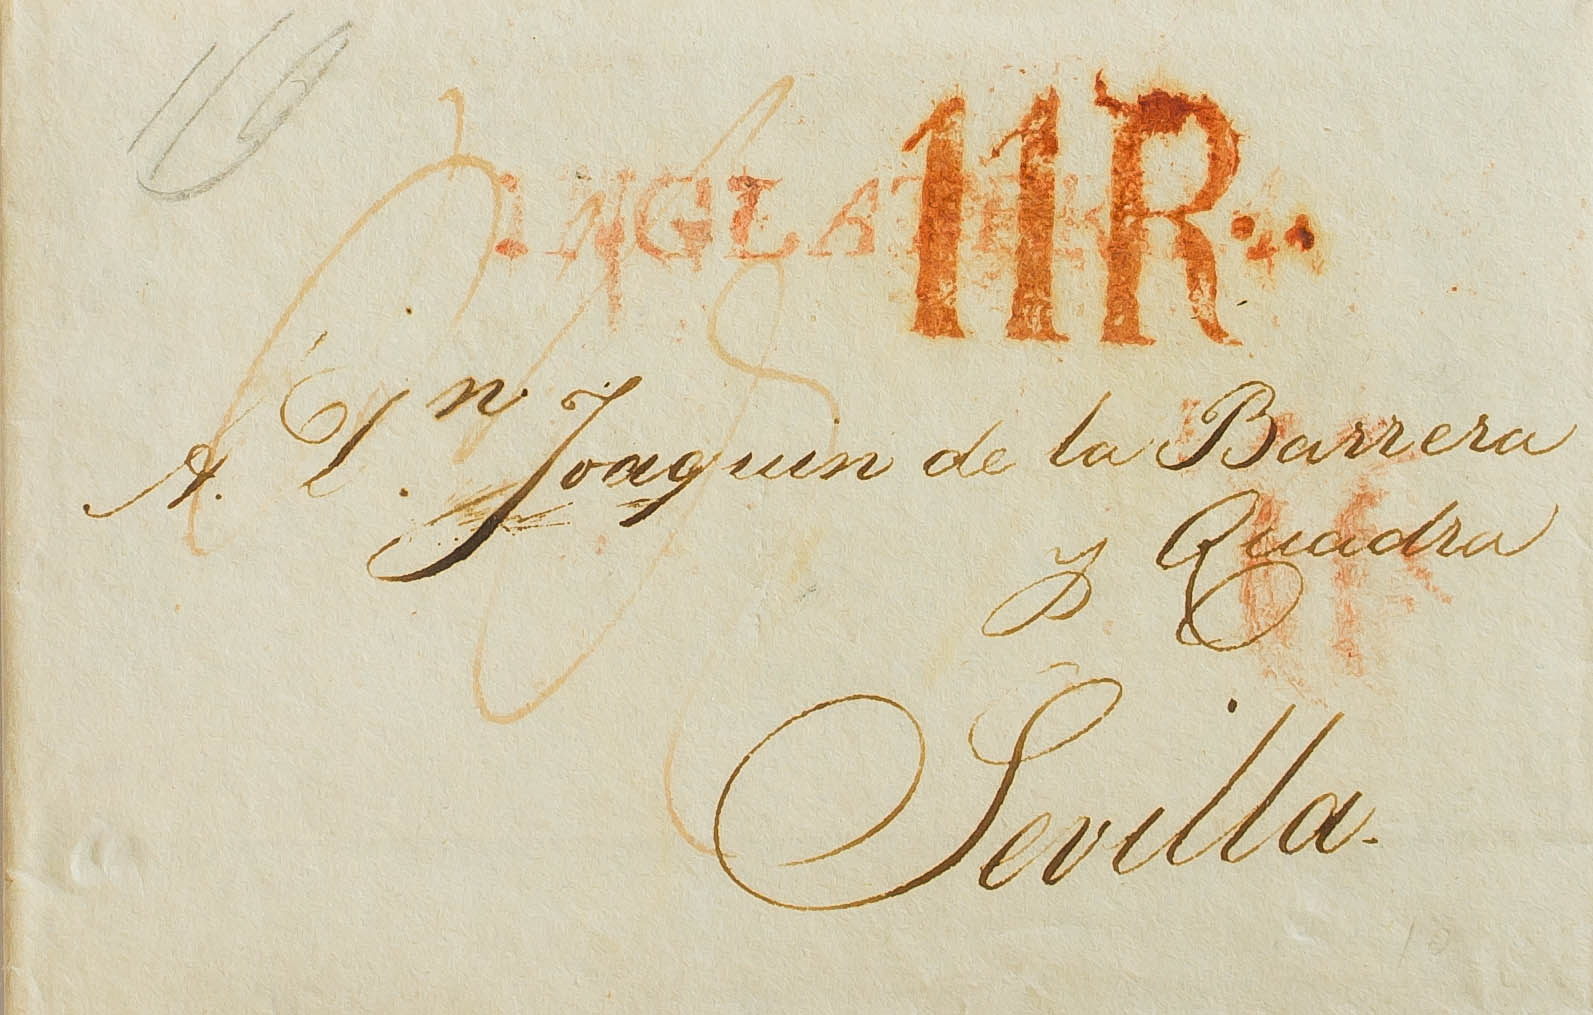 INGLATERRA
11R..
A. Dn. Joaquin de la Barrera
y Quadra
Sevilla.